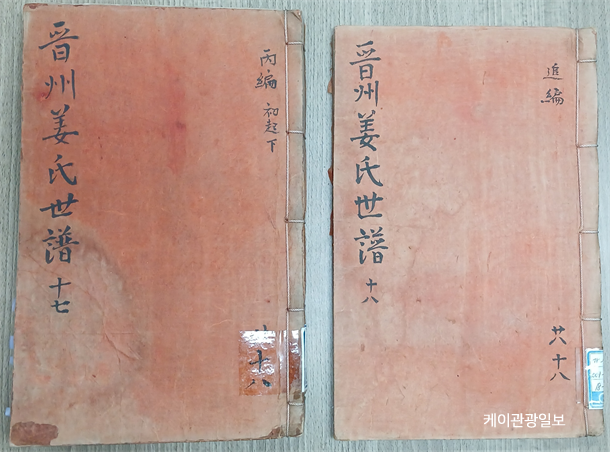 晋州姜氏世譜 十七
丙編 初起下
十八
晋州姜氏世譜 十八
追編
共十八
케이관광일보